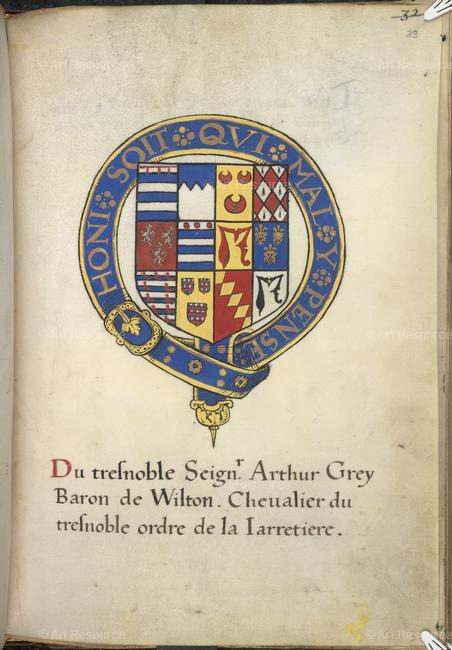 32
33
HONI SOIT QVI MAL Y PENSE
Du treſnoble Seignʳ. Arthur Grey
Baron de Wilton. Cheualier du
treſnoble ordre de la Iarretiere.
© Art Resource
© Art Resource
© Art Resource
© Art Resource
© Art Resource